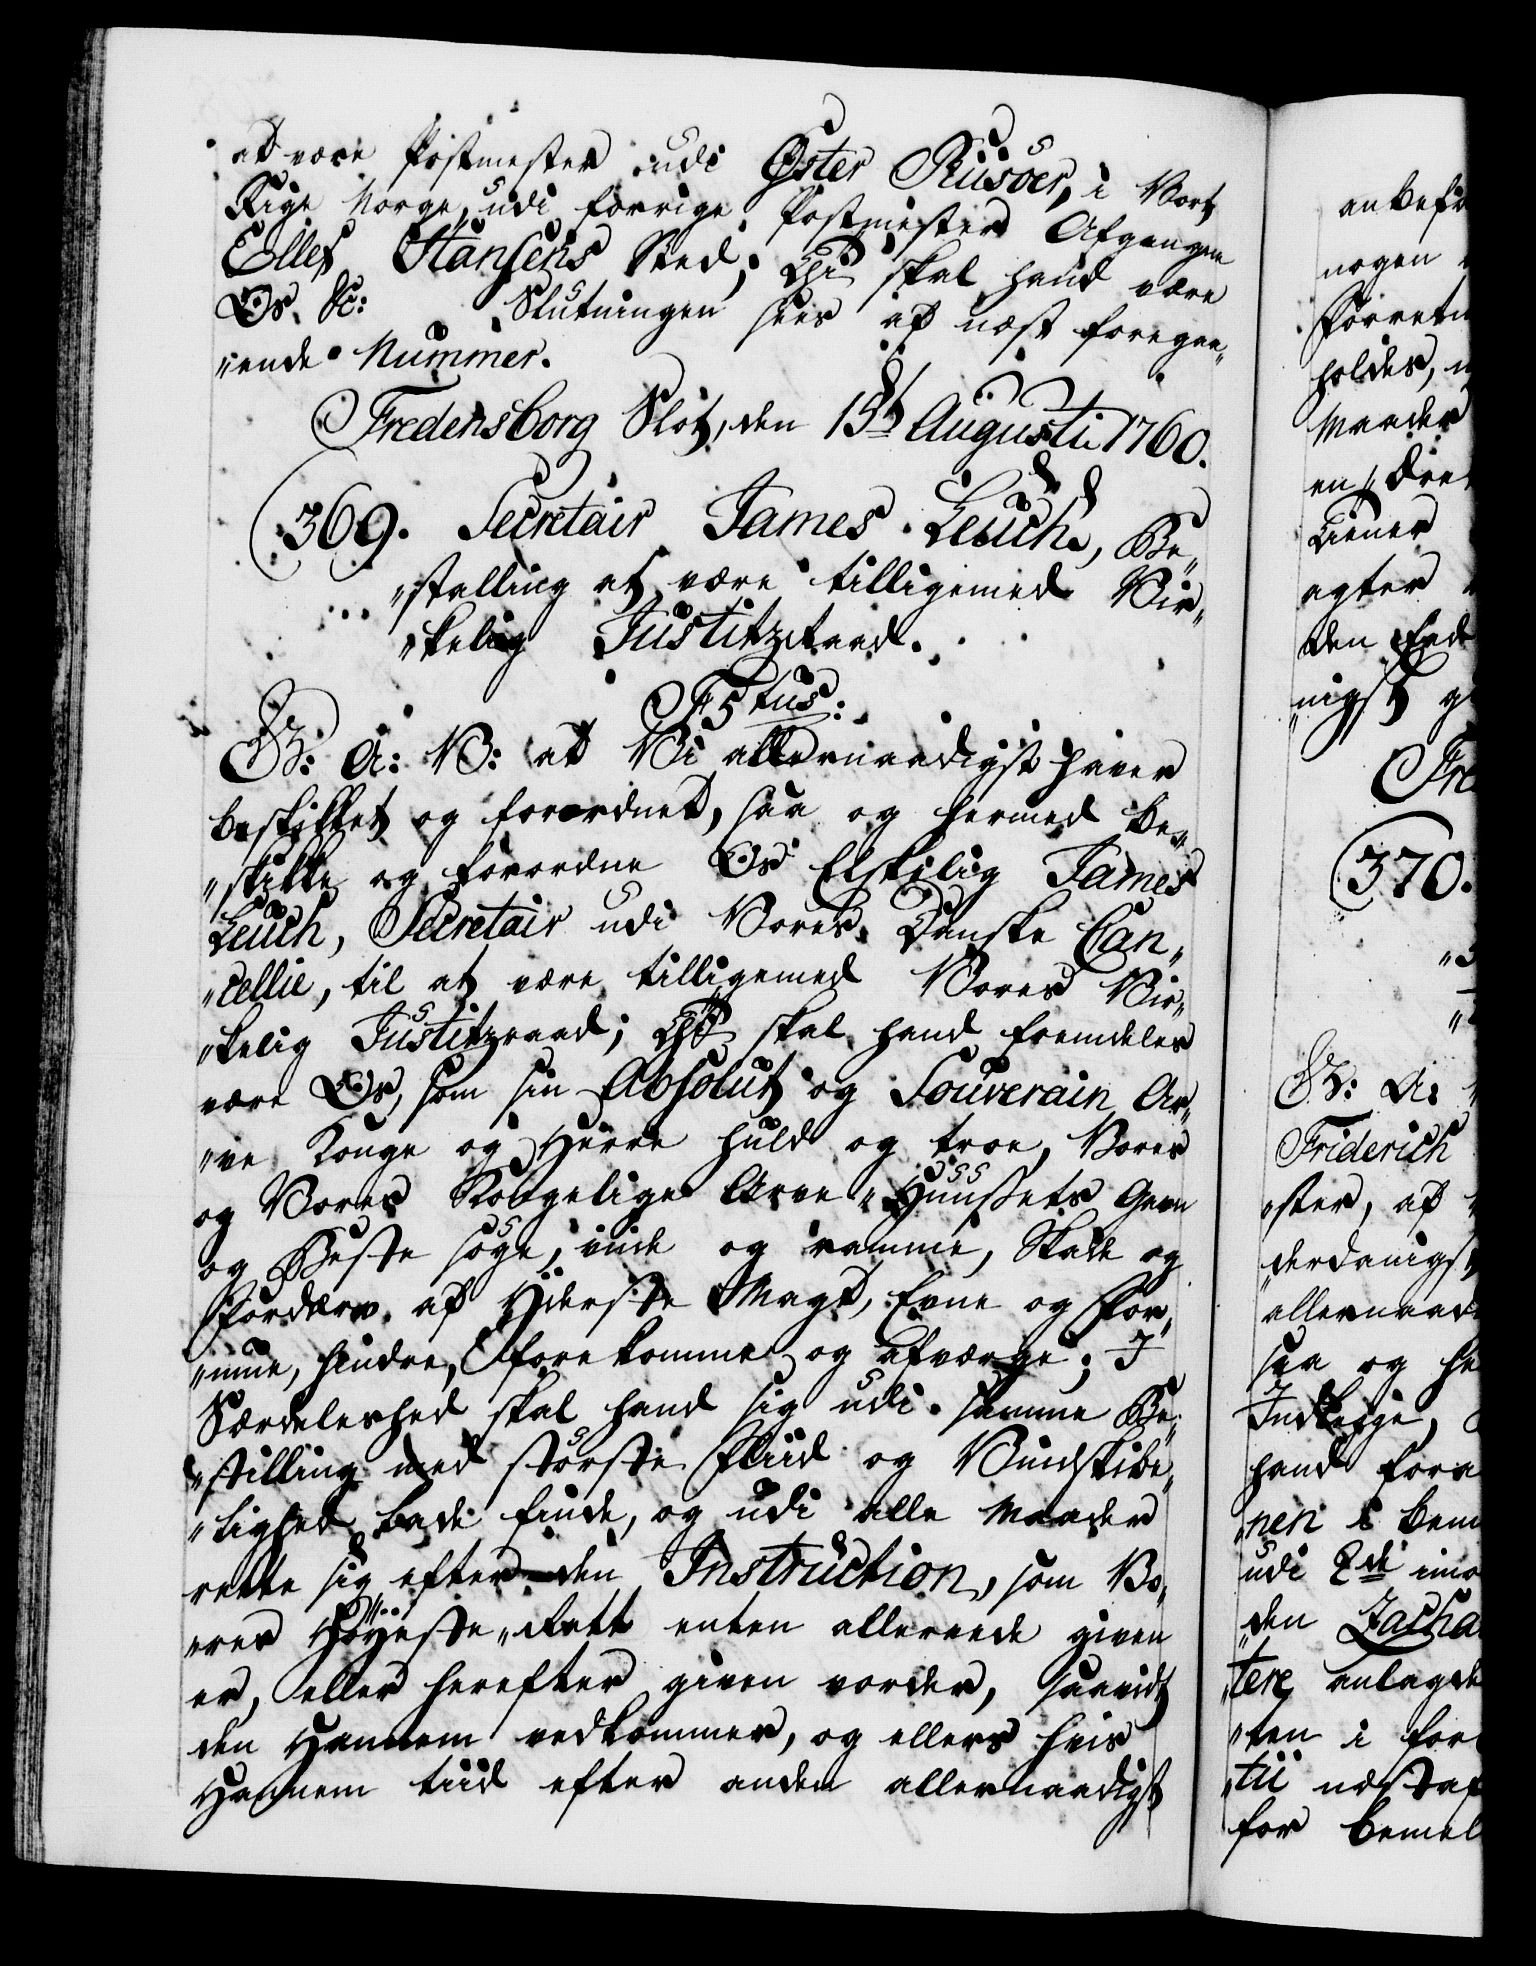 at være Postmester udi Øster Riisøer, i Vort
Rige Norge, udi forrige Postmester Afgangne
Ellef Hansens Sted; Thi skal hand være
Os &c: Slutningen sees af næst foregaa„
„ende Nummer.
Fredensborg Slot, den 15t Augusti 1760.
369. Secretair James Leuch, Be„
„stalling at være tilligemed Vir„
„kelig Justitzraad.
F5tus:
G: A: V: at Vi allernaadigst haver
beskikket og forordnet, saa og hermed be„
„skikke og forordne Os Elskelig James
Leuch, Secretair udi Vores Danske Can„
„cellie, til at være tilligemed Vores Vir„
„kelig Justitzraad; Thi skal hand fremdeles
være Os, som sin Absolut og Souverain Ar„
„ve Konge og Herre huld og troe, Vores
og Vores Kongelige Arve„Huussets Gavn
og Beste søge, vide og ramme, Skade og
Fordærv af Yderste Magt, Evne og For„
„mue, hindre, forekomme og afværge; I
Særdeleshed skal hand sig udi samme Be„
„stilling med største Fliid og Vindskibe„
„lighed lade finde, og udi alle Maader
rette sig efter den Instruction, som Vo„
„res Høyeste„Rett enten allereede given
er, eller herefter given vorder, saavidt
den Hannem vedkommer, og ellers hvis
Hannem tiid efter anden allernaadigst
nogen
holdes,
Maader
agter
370.
G: A:
Friderich
„ster, af
„derdanigst
allernaad
saa og he
hand fora
„nen i bem
udi
„den Zacha
„tere anlagde
„ten i for
„tii næstaf
for bemel